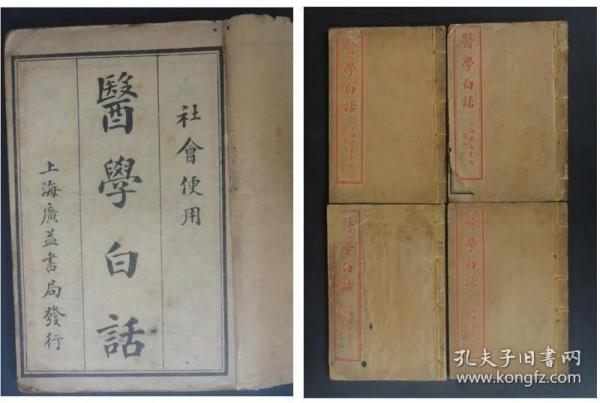 社會便用
醫學白話
上海廣益書局發行
醫學白話
醫學白話
醫學白話
醫學白話
孔夫子旧书网
www.kongfz.com